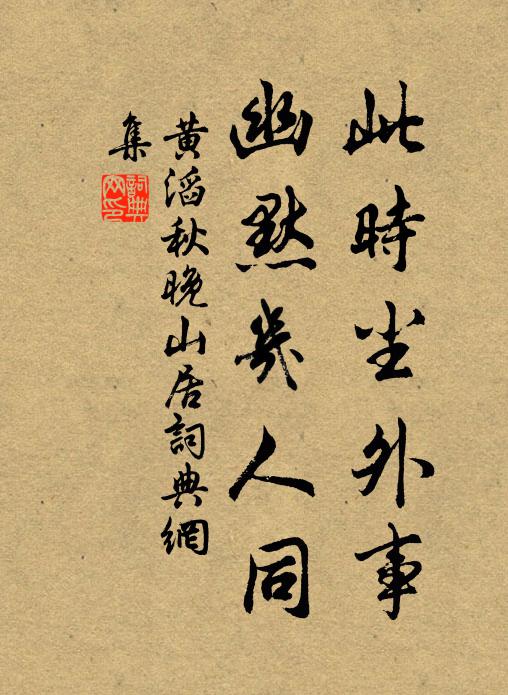 此時尘外事
幽默幾人同
黄滔秋晚山居詞典網
集
詞典
网印